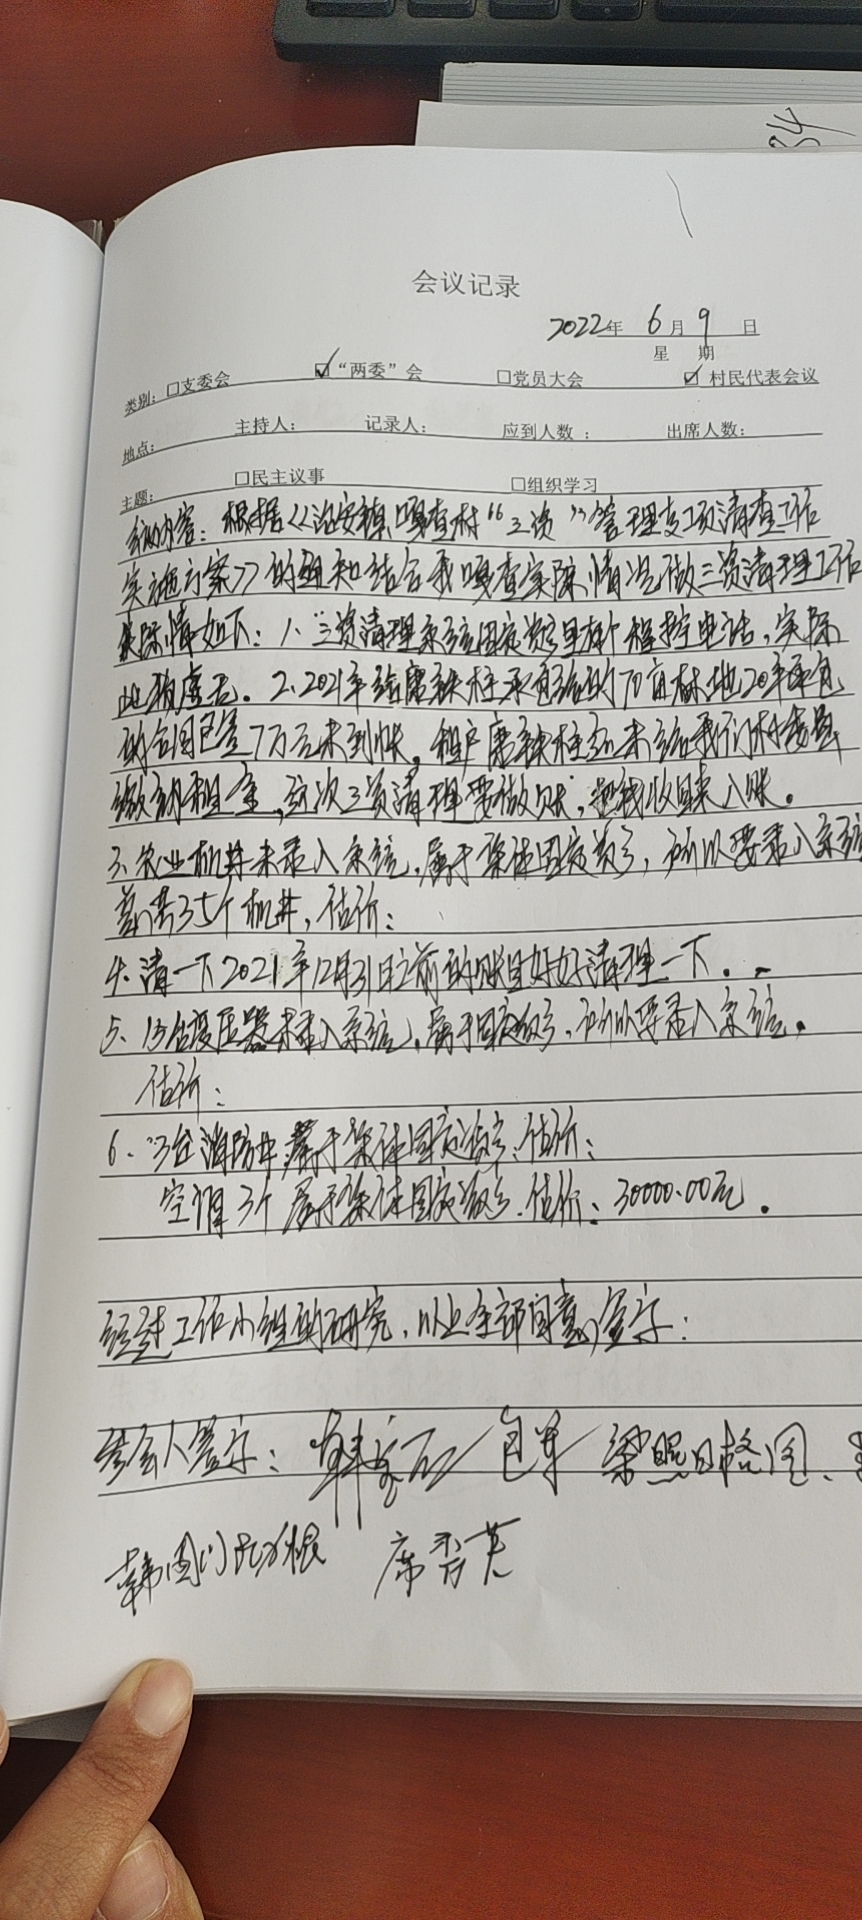 会议记录
2022年 6月 9 日
星 期
类别：□支委会 ☑“两委”会 □党员大会 ☑村民代表会议
地点： 主持人： 记录人： 应到人数： 出席人数：
主题： □民主议事 □组织学习
内容：根据《治安镇嘎查村“三资”管理专项清查工作
实施方案》的通知结合我嘎查实际情况做三资清理工作
实际情如下：1、三资清理系统固定资产里有个程控电话，实际
此项虚无。2.2021年给席铁柱承包给的70亩林地20年承包
的合同已签7万元未到帐。租户席铁柱还未给我们村委
缴纳租金，这次三资清理要做账，把钱收回来入账。
3、农业机井未录入系统，属于集体固定资产，所以要录入系统
共35个机井，估价：
4、清一下2021年12月31日之前的账目好好清理一下。
5、15台变压器未录入系统，属于固定资产，所以要录入系统。
估价：
6、3台消防井属于集体固定资产，估价：
空调3个属于集体固定资产.估价：30000.00元。
经过工作小组的研究，以上全部同意，签字：
参会人签字： 包军 梁照日格图、
席香芙